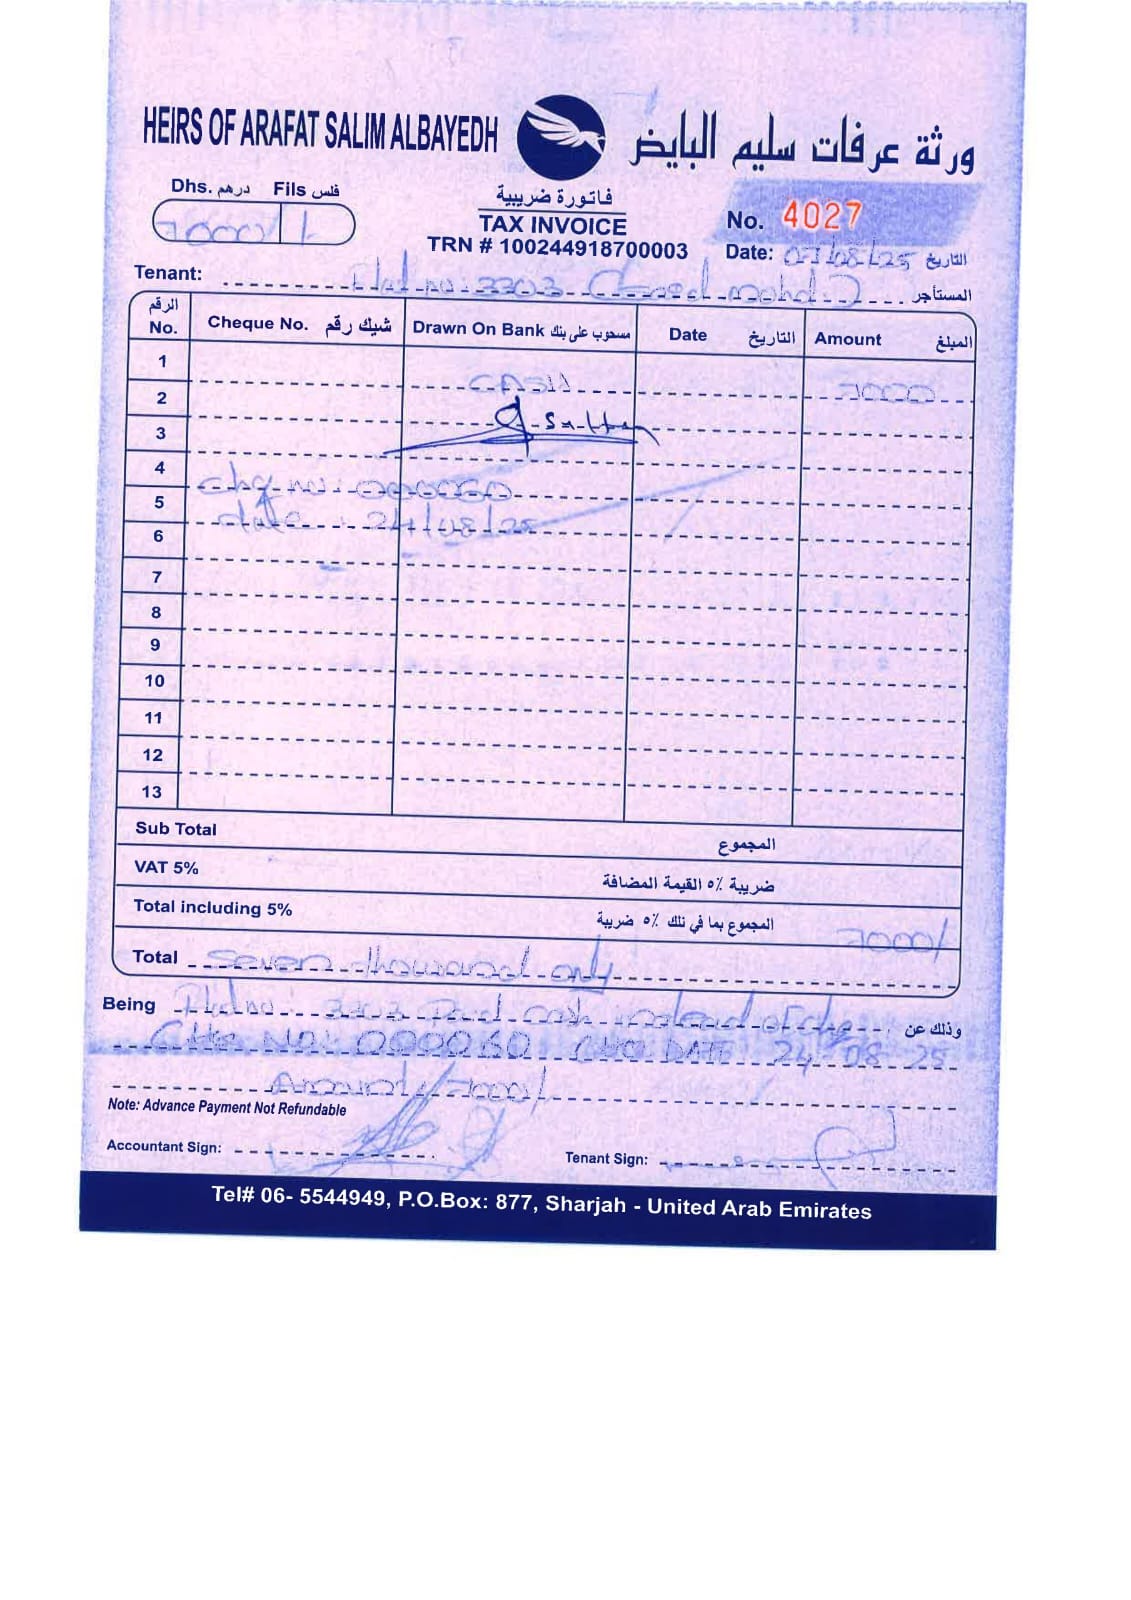 HEIRS OF ARAFAT SALIM ALBAYEDH ورثة عرفات سليم البايض
Dhs. درهم Fils فلس
7000/
فاتورة ضريبية
TAX INVOICE
TRN # 100244918700003
No. 4027
Date: 07/08/25 التاريخ
Tenant: Flat no. 3303 mohd المستأجر
الرقم No. Cheque No. شيك رقم Drawn On Bank مسحوب على بنك Date التاريخ Amount المبلغ
1 CASH 7000
2
3
4 chq no: 000060
5 date : 24/08/25
6
7
8
9
10
11
12
13
Sub Total المجموع
VAT 5% ضريبة ٥٪ القيمة المضافة
Total including 5% المجموع بما في تلك ٥٪ ضريبة 7000/
Total Seven thousand only
Being Flat no: 3303 Paid cash instead of chq وذلك عن
CHQ NO: 000060 CHQ DATE 24-08-25
Amount/7000/
Note: Advance Payment Not Refundable
Accountant Sign:
Tenant Sign:
Tel# 06- 5544949, P.O.Box: 877, Sharjah - United Arab Emirates